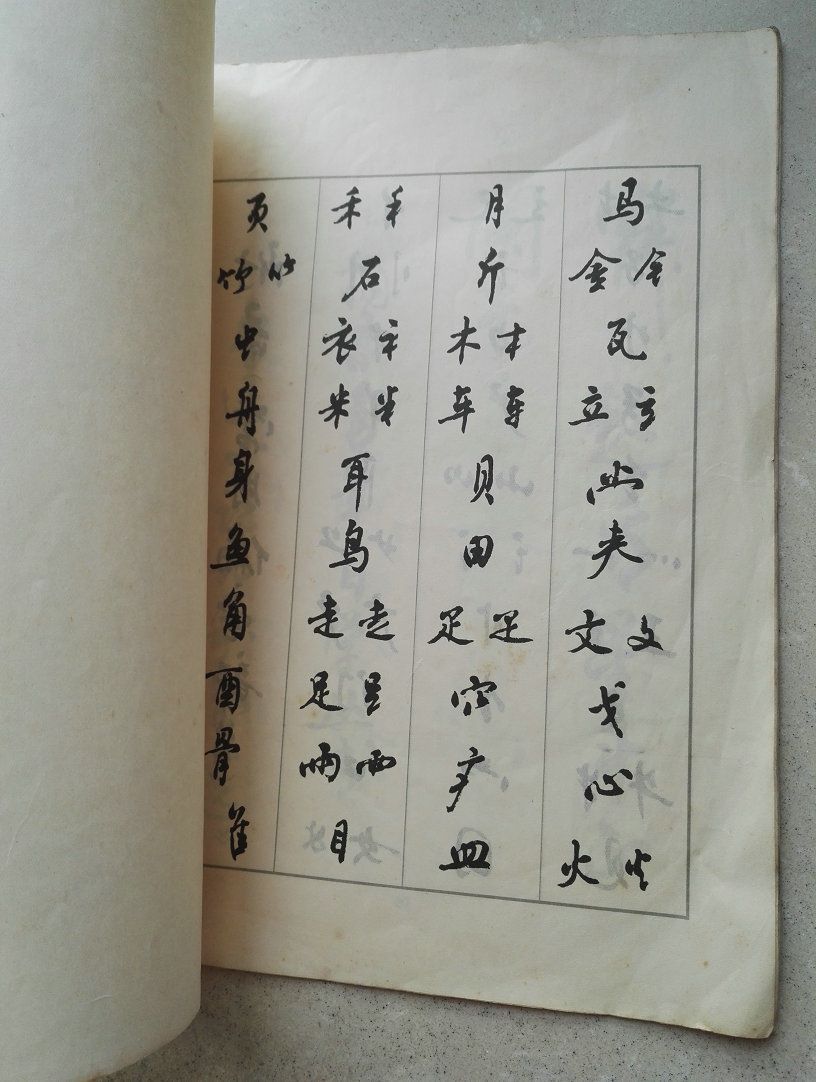 马
金 金
瓦
立 立
夫
文 文
戈
心
火 火
月
斤
木 木
车 车
贝
田
足 足
穴
疒
皿
禾 禾
石
衣 衤
米 米
耳
鸟
走 走
足 𧾷
雨 雨
目
页
竹 竹
虫
舟
身
鱼
角
酉
骨
隹